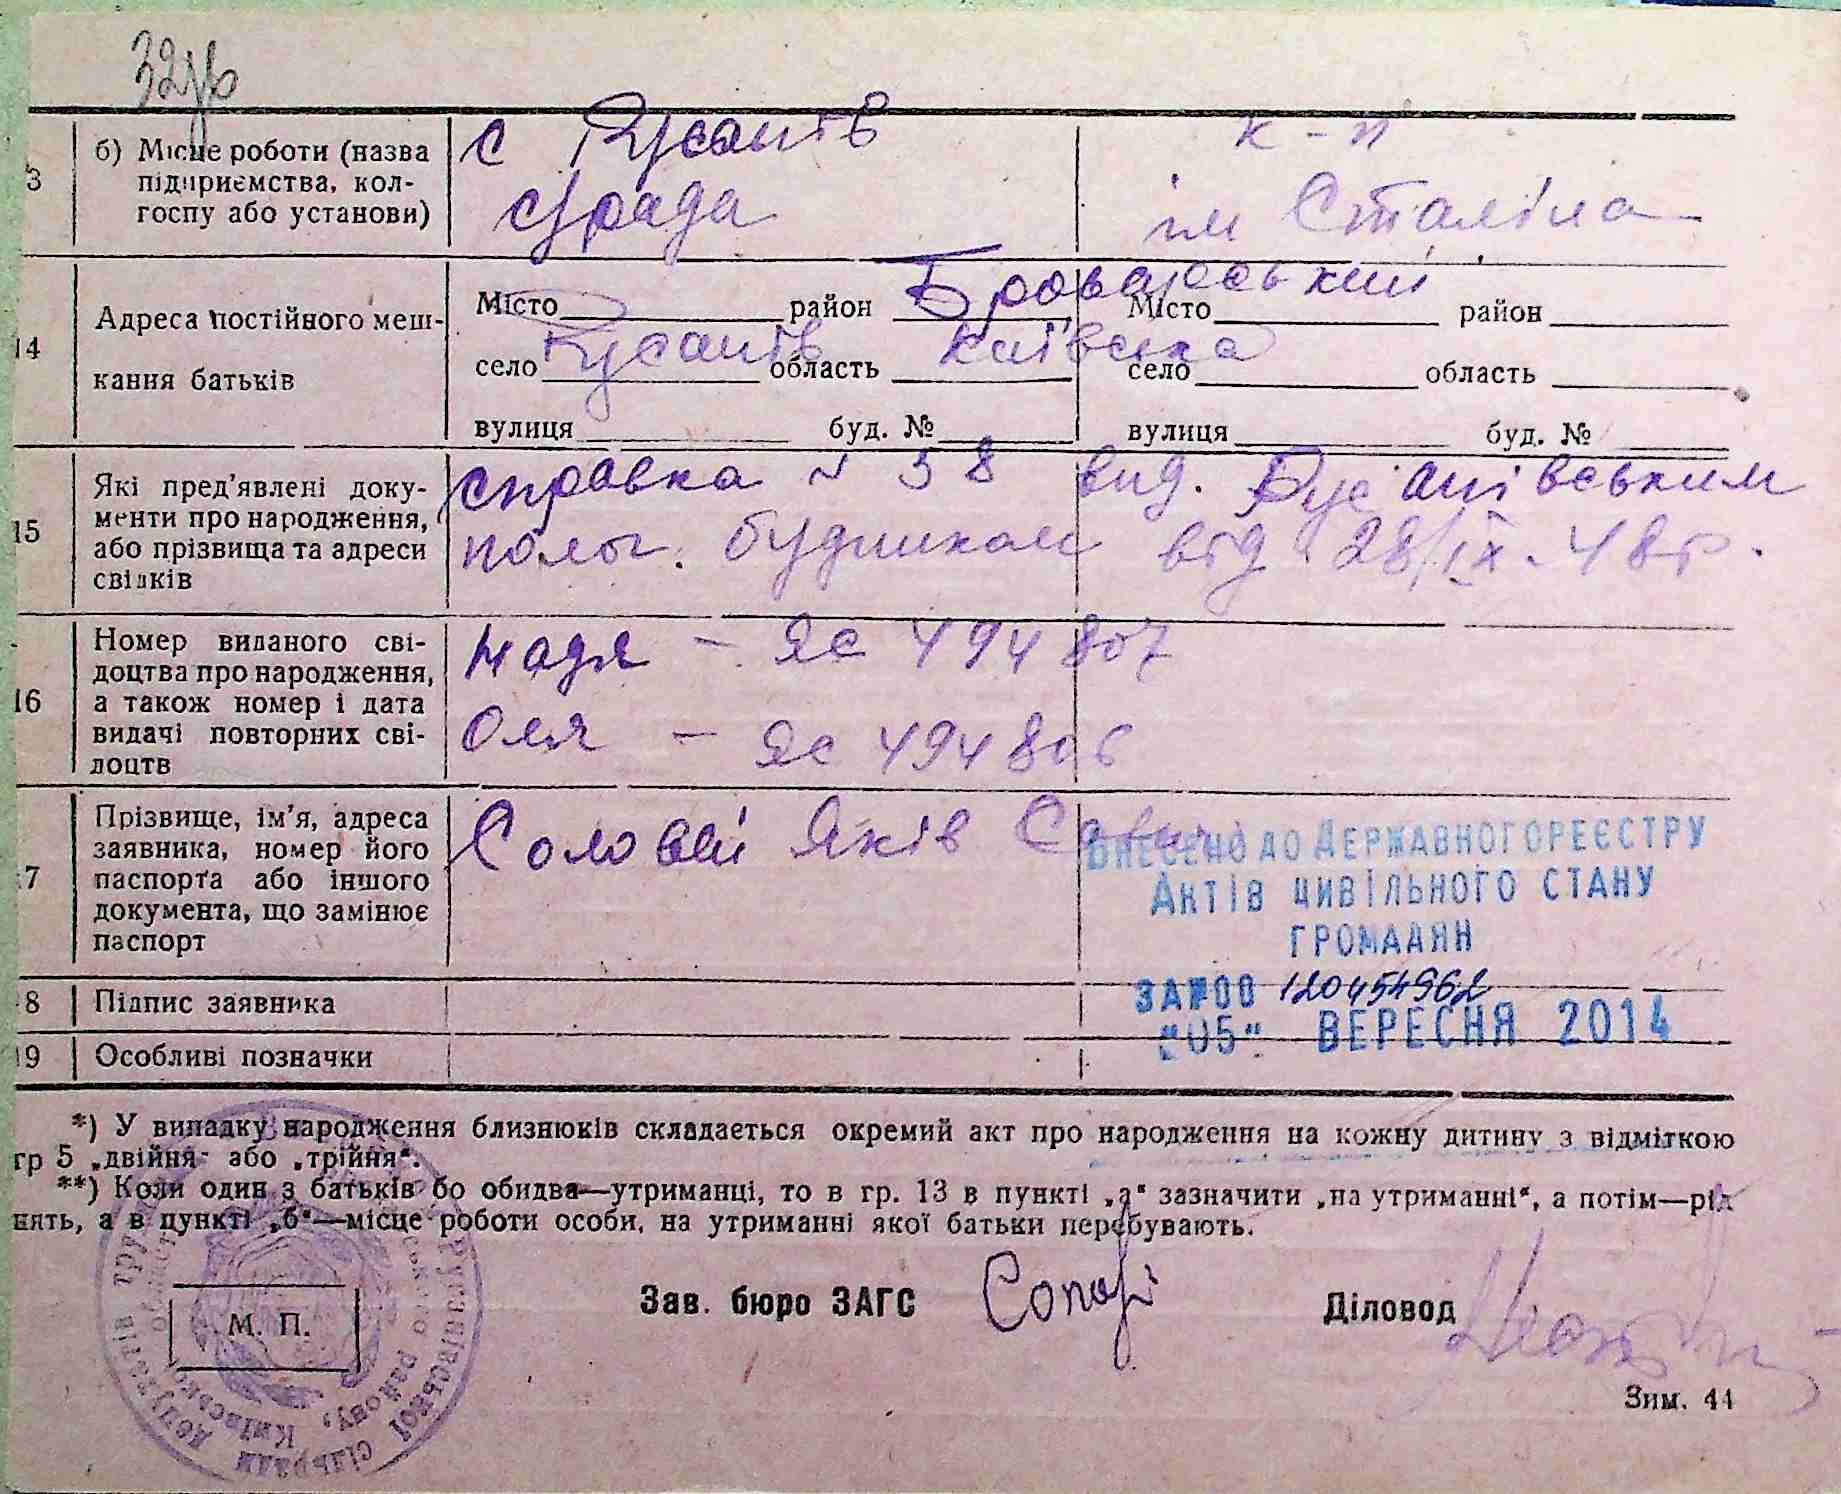 32
13 б) Місце роботи (назва підприємства, колгоспу або установи)
с Русанів
с/рада
к-п
ім Сталіна
14 Адреса постійного мешкання батьків
Місто район Броварський
село Русанів область Київська
вулиця буд. №
Місто район
село область
вулиця буд. №
15 Які пред'явлені документи про народження, або прізвища та адреси свідків
справка № 38 вид. Русанівським
полог. будинком від 28/IX.48р.
16 Номер виданого свідоцтва про народження, а також номер і дата видачі повторних свідоцтв
Надя – ЯС 494807
Оля – ЯС 494806
17 Прізвище, ім'я, адреса заявника, номер його паспорта або іншого документа, що замінює паспорт
Соловей Яків
Внесено до Державного реєстру
Актів цивільного стану
громадян
за №00 120454962
"05" вересня 2014
18 Підпис заявника
19 Особливі позначки
*) У випадку народження близнюків складається окремий акт про народження на кожну дитину з відміткою
гр 5 „двійня" або „трійня".
**) Коли один з батьків бо обидва—утриманці, то в гр. 13 в пункті „а" зазначити „на утриманні", а потім—рід
нять, а в пункті „б"—місце роботи особи, на утриманні якої батьки перебувають.
М. П.
Зав. бюро ЗАГС
Діловод
Зим. 44